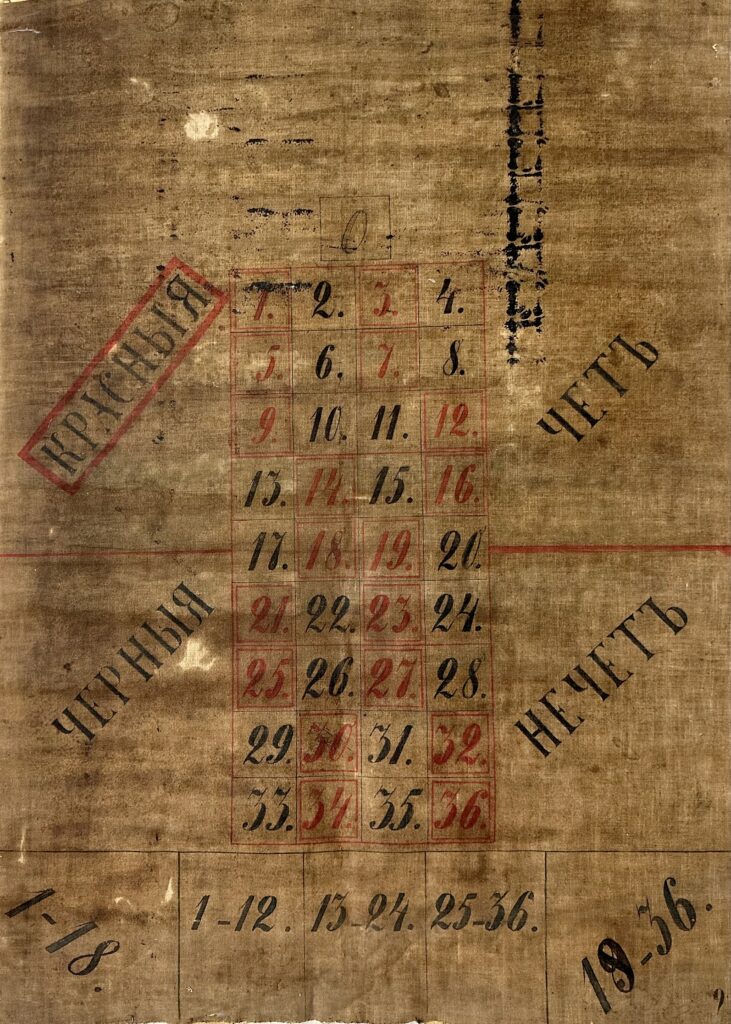 0
1. 2. 3. 4.
КРАСНЫЯ
5. 6. 7. 8.
ЧЕТЪ
9. 10. 11. 12.
13. 14. 15. 16.
17. 18. 19. 20.
21. 22. 23. 24.
ЧЕРНЫЯ
НЕЧЕТЪ
25. 26. 27. 28.
29. 30. 31. 32.
33. 34. 35. 36.
1-18.
1-12. 13-24. 25-36.
19-36.